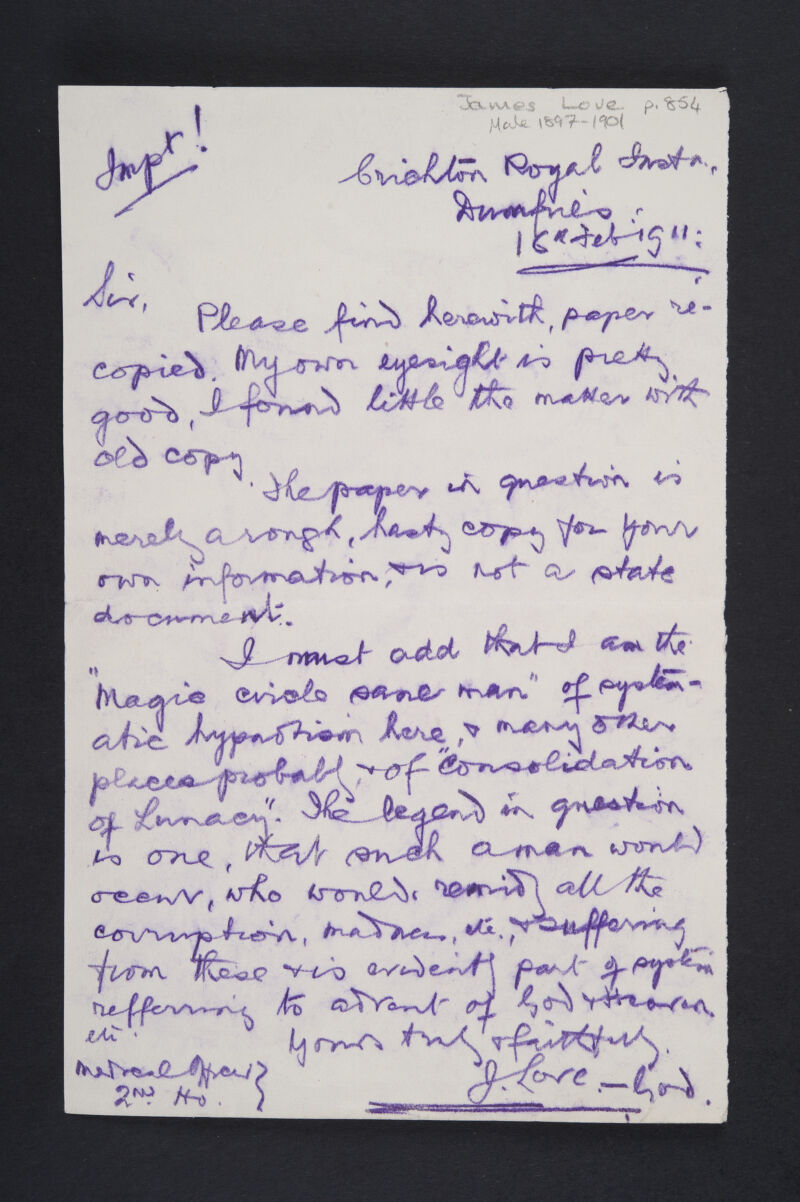 James Love p.854
Male 1897-1901
Impt!
Crichton Royal Instn.,
Dumfries.
16th Feb 1911:
Sir,
Please find herewith, paper re-
copied. My own eyesight is pretty
good, I found little the matter with
old copy.
The paper in question is
merely a rough, hasty copy for your
own information, & is not a state
document.
I must add that I am the
"Magic circle sane man" of system-
atic hypnotism here, & many other
places probably, & of "Consolidation
of Lunacy". The legend in question
is one, that such a man would
occur, who would remidy all the
corruption, madness, etc., & suffering
from these & is evidently part of system
refferring to advent of God & Heaven.
etc.
Yours truly & faithfully.
J. Love. — God.
Medical Officer }
2nd Ho.